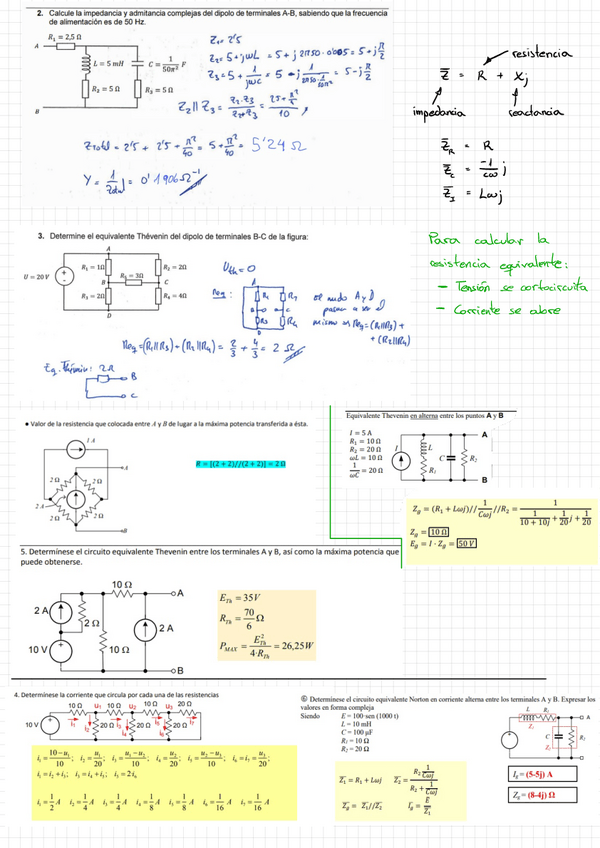 2. Calcule la impedancia y admitancia complejas del dipolo de terminales A-B, sabiendo que la frecuencia
de alimentación es de 50 Hz.
R₁ = 2,5 Ω
A
L = 5 mH
C = 1/(50π²) F
R₂ = 5 Ω
R₃ = 5 Ω
B
Z₁ = 2'5
Z₂ = 5 + jωL = 5 + j 2π50 · 0'005 = 5 + j π/2
Z₃ = 5 + 1/(jωC) = 5 - j 1/(2π50 · 1/(50π²)) = 5 - j π/2
Z₂ || Z₃ = (Z₂·Z₃)/(Z₂+Z₃) = (25 + π²/4)/10
Ztotal = 2'5 + 2'5 + π²/40 = 5 + π²/40 = 5'24 Ω
= 0'1906 Ω⁻¹
resistencia
Z = R + Xj
impedancia
reactancia
Z_R = R
Z_C = -1/(Cω) j
= Lωj
3. Determine el equivalente Thévenin del dipolo de terminales B-C de la figura:
A
R₁ = 1Ω
R₂ = 2Ω
U = 20 V
B
= 3Ω
C
R₃ = 2Ω
R₄ = 4Ω
D
Uth = 0
Req :
A
R₁
R₂
B
C
R₃
R₄
D
el nudo A y D
pasan a ser el
mismo
Req = (R₁||R₃) +
+ (R₂||R₄)
Req = (R₁||R₃) + (R₂||R₄) = 2/3 + 4/3 = 2 Ω
Eq. Thévenin: 2Ω
B
C
Para calcular la
resistencia equivalente:
- Tensión se cortocircuita
- Corriente se abre
• Valor de la resistencia que colocada entre A y B de lugar a la máxima potencia transferida a ésta.
1 A
2 Ω
2 Ω
2 A
2 Ω
2 Ω
A
B
R = [(2 + 2)//(2 + 2)] = 2 Ω
Equivalente Thevenin en alterna entre los puntos A y B
I = 5 A
R₁ = 10 Ω
R₂ = 20 Ω
ωL = 10 Ω
1/(ωC) = 20 Ω
I
L
R₁
C
R₂
A
B
Z_g = (R₁ + Lωj)// 1/(Cωj) //R₂ = 1/(1/(10 + 10j) + 1/20 j + 1/20)
Z_g = 10 Ω
E_g = I · Z_g = 50 V
5. Determínese el circuito equivalente Thevenin entre los terminales A y B, así como la máxima potencia que
puede obtenerse.
10 Ω
A
2 A
2 Ω
2 A
10 V
10 Ω
B
E_Th = 35V
R_Th = 70/6 Ω
P_MAX = E²_Th/(4·R_Th) = 26,25W
4. Determínese la corriente que circula por cada una de las resistencias
10 Ω u₁ 10 Ω u₂ 10 Ω u₃ 20 Ω
10 V
i₁ i₂ 20 Ω i₃ i₄ 20 Ω i₅ i₆ 20 Ω i₇
i₁ = (10-u₁)/10; i₂ = u₁/20; i₃ = (u₁-u₂)/10; i₄ = u₂/20; i₅ = (u₂-u₃)/10; i₆ = i₇ = u₃/20;
i₁ = i₂ + i₃; i₃ = i₄ + i₅; i₅ = 2i₆
i₁ = 1/2 A i₂ = 1/4 A i₃ = 1/4 A i₄ = 1/8 A i₅ = 1/8 A i₆ = 1/16 A i₇ = 1/16 A
⑥ Determínese el circuito equivalente Norton en corriente alterna entre los terminales A y B. Expresar los
valores en forma compleja
Siendo E = 100·sen (1000 t)
L = 10 mH
C = 100 μF
R₁ = 10 Ω
R₂ = 20 Ω
Z₁ = R₁ + Lωj Z₂ = (R₂ 1/(Cωj))/(R₂ + 1/(Cωj))
Z_g = Z₁//Z₂ I_g = E/Z₁
L R₁
Z₁
A
C
R₂
Z₂
B
I_g = (5-5j) A
Z_g = (8-4j) Ω